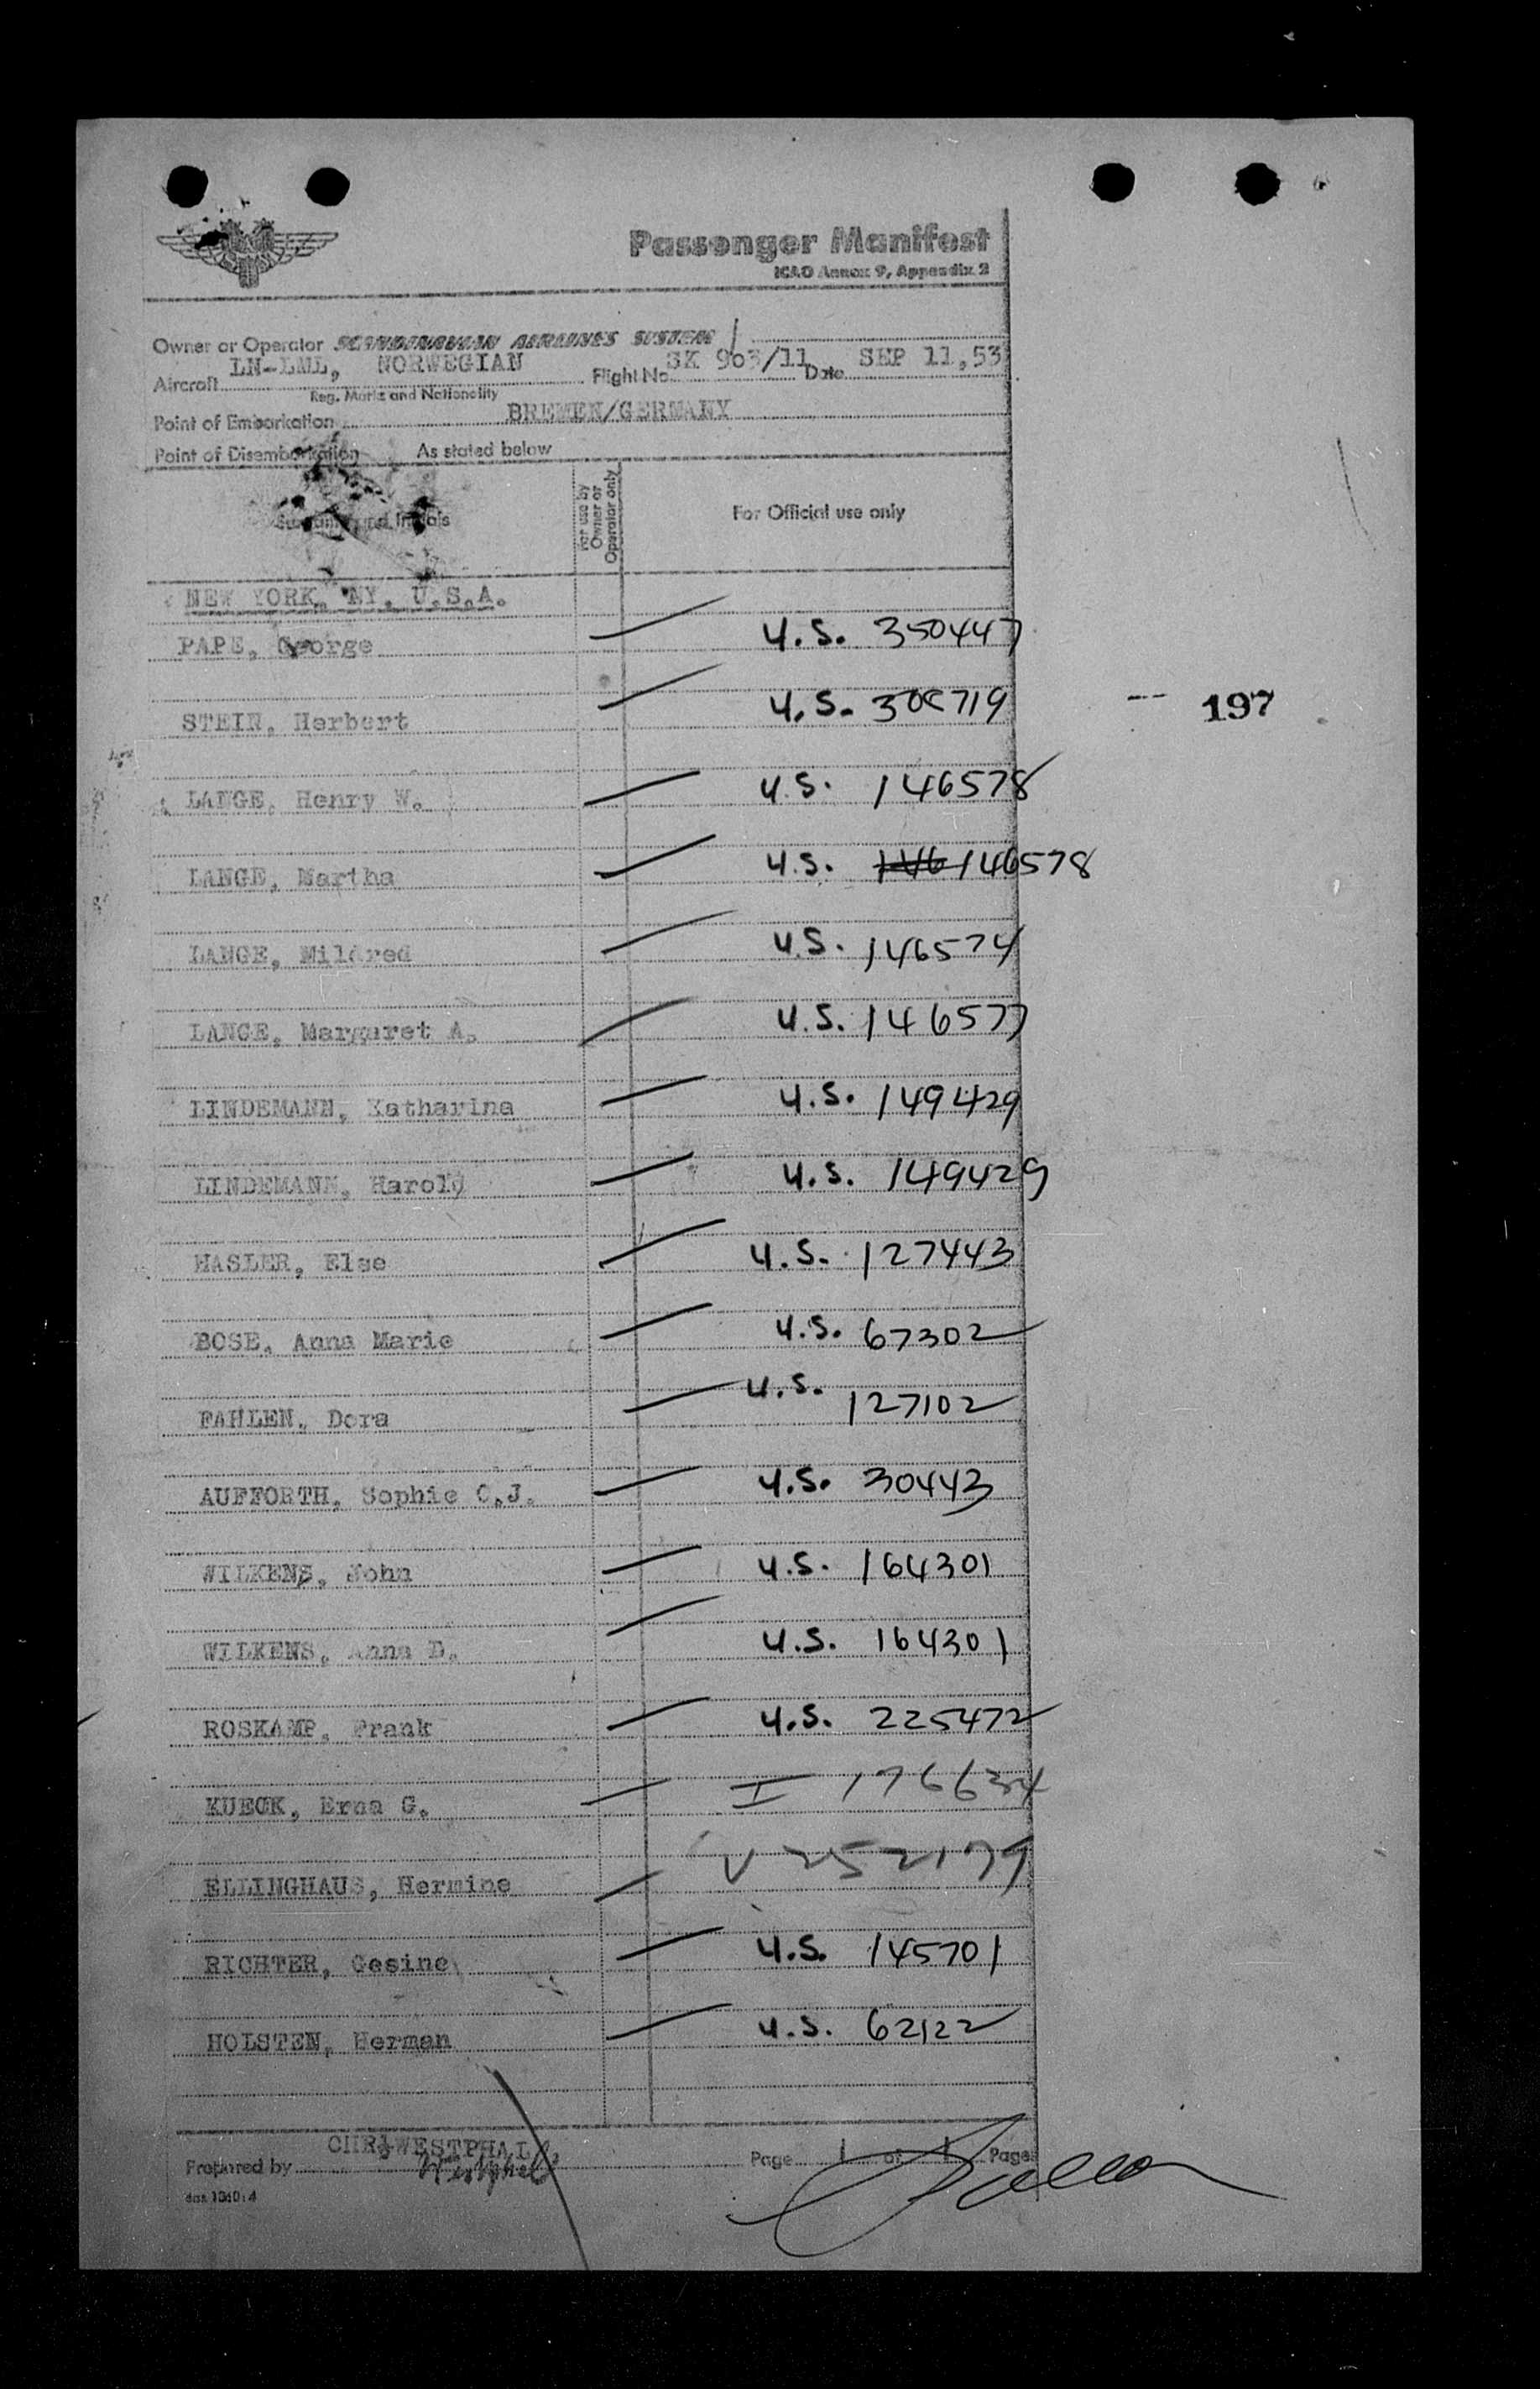 Passenger Manifest
ICAO Annex 9, Appendix 2
Owner or Operator SCANDINAVIAN AIRLINES SYSTEM
Aircraft LN-LML, NORWEGIAN Flight No. SK 903/11 Date SEP 11,53
Reg. Marks and Nationality
Point of Embarkation BREMEN/GERMANY
Point of Disembarkation As stated below
Surname and Initials
For use by Owner or Operator only
For Official use only
NEW YORK, NY, U.S.A.
PAPE, George U.S. 350447
STEIN, Herbert U.S. 719
197
LANGE, Henry W. U.S. 146578
LANGE, Martha U.S. 146 146578
LANGE, Mildred U.S. 146574
LANGE, Margaret A. U.S. 146577
LINDEMANN, Katharina U.S. 149429
LINDEMANN, Harold U.S. 149429
HASLER, Else U.S. 127443
BOSE, Anna Marie U.S. 67302
FAHLEN, Dora U.S. 127102
AUFFORTH, Sophie C.J. U.S. 30443
WILKENS, John U.S. 164301
WILKENS, Anna D. U.S. 164301
ROSKAMP, Frank U.S. 225472
KUECK, Erna G. I 176634
ELLINGHAUS, Hermine V 252179
RICHTER, Gesine U.S. 145701
HOLSTEN, Herman U.S. 62122
CHR. WESTPHAL
Prepared by Westphal Page 1 of 1 Pages